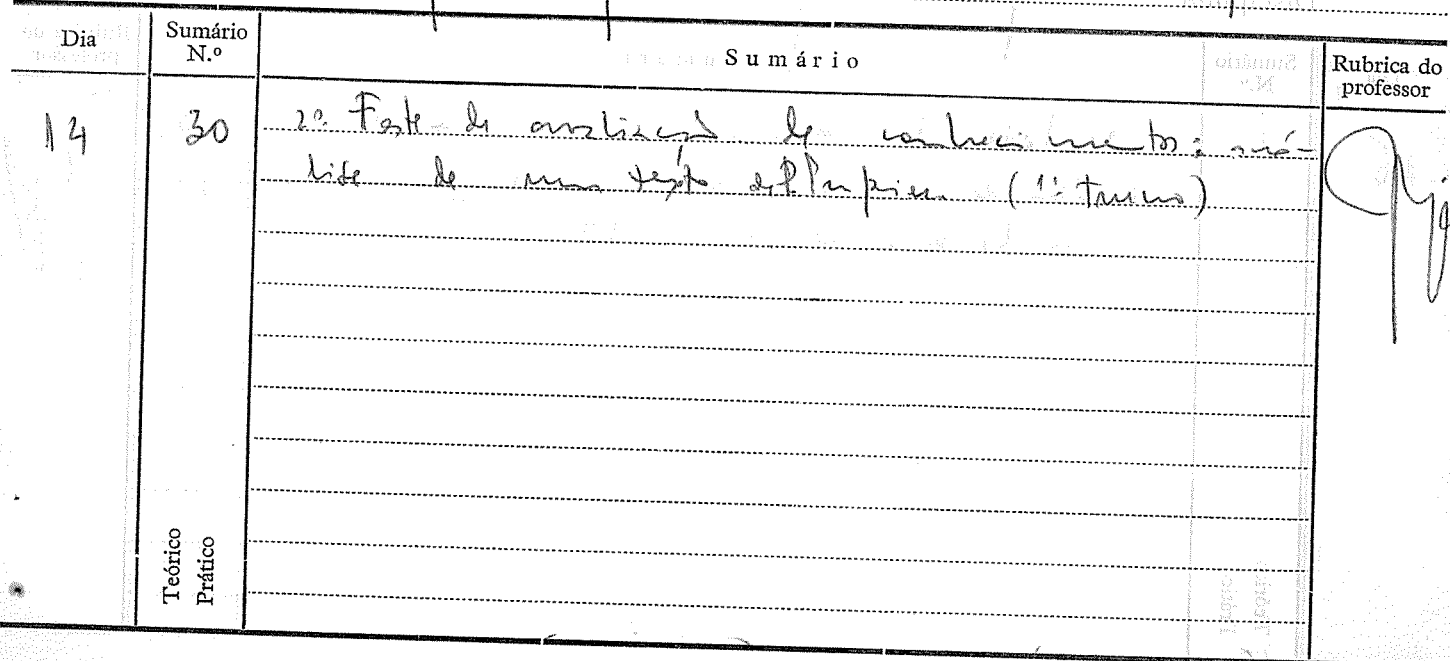 Dia
Sumário N.º
Sumário
Rubrica do professor
14
30
2º Teste de avaliação de conhecimentos: aná-
lise de um texto (1º turno)
Teórico
Prático